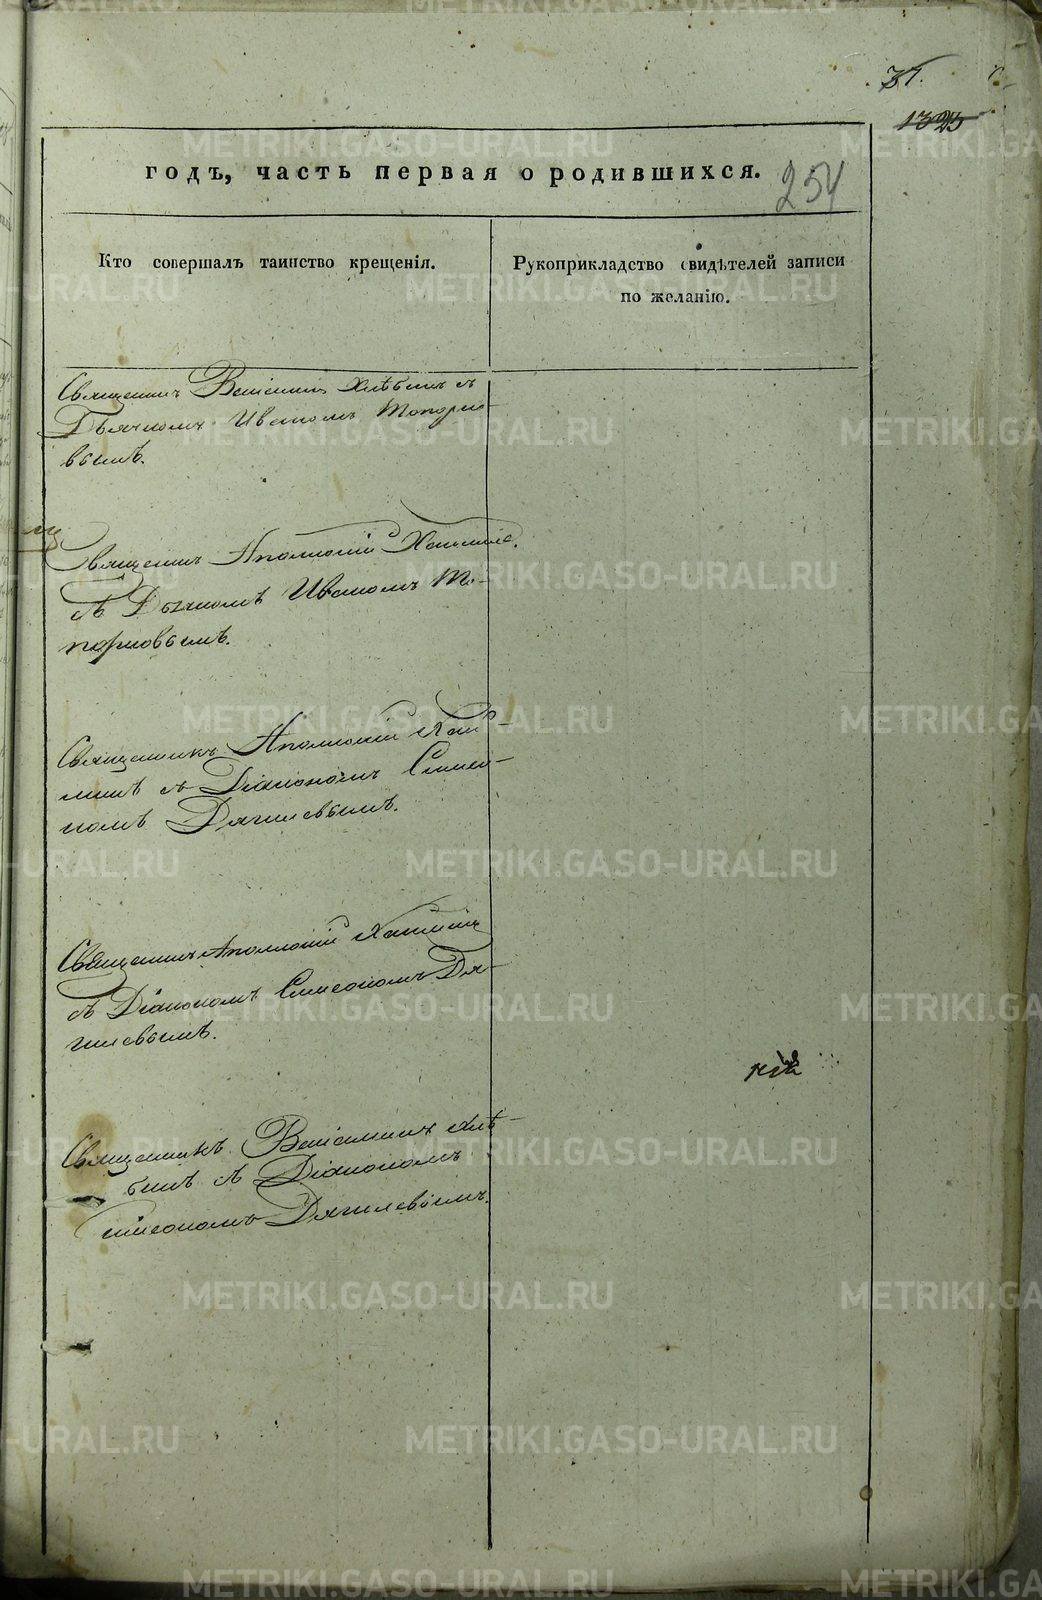 37.
1325
годъ, часть первая о родившихся.
254
Кто совершалъ таинство крещенія.
Рукоприкладство свидѣтелей записи
по желанію.
Священникъ Веніаминъ Хлѣбинъ съ
Дьячкомъ Иваномъ Топорко-
вымъ.
Священникъ Аполлоній
съ Дьячкомъ Иваномъ То-
порковымъ.
Священникъ Аполлоній
съ Діакономъ Симео-
номъ Дягилевымъ.
Священникъ Аполлоній
съ Діакономъ Симеономъ Дя-
гилевымъ.
Священникъ Веніаминъ Хлѣ-
бинъ съ Діакономъ
Симеономъ Дягилевымъ.
METRIKI.GASO-URAL.RU